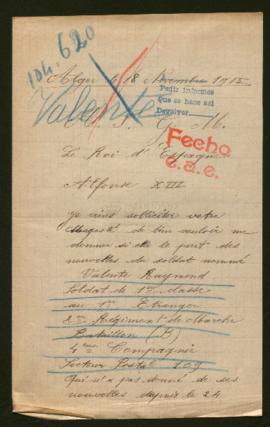 104.620
Alger le 18 Novembre 1915
Pedir informes
que se hace así
Devolver
Valente
S. M.
Fecho
c.a.e.
Le Roi d'Espagne
Alfonse XIII
Je viens solliciter votre
Majesté de bien vouloir me
donner si elle le peut des
nouvelles du soldat nommé
Valente Raymond
Soldat de 1re classe
au 1er Etranger
2me Régiment de Marche
Bataillon (B)
4eme Compagnie
Secteur Postal 109
Qui n'a pas donné de ses
nouvelles depuis le 24